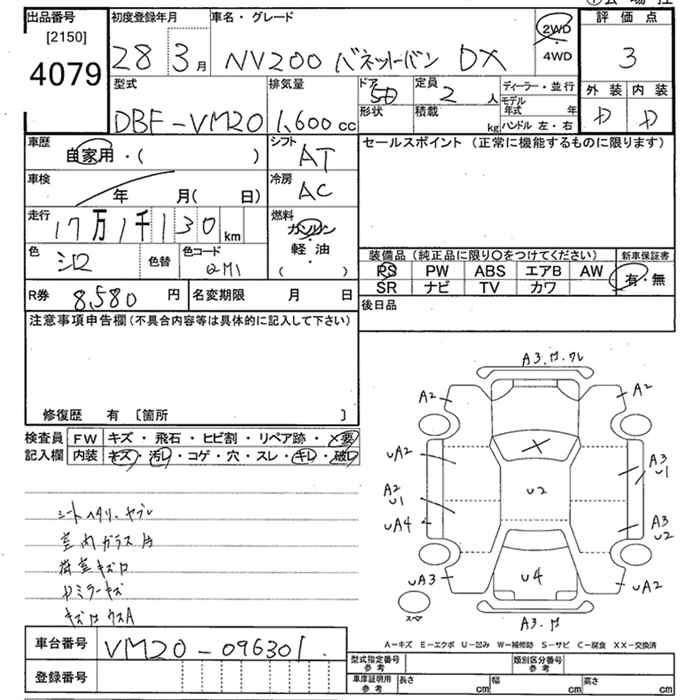 出品番号
[2150]
4079
初度登録年月
28 3月
車名・グレード
NV200 バネットバン DX
2WD
・
4WD
評価点
3
外装 内装
型式
DBF-VM20
排気量
1,600cc
ドア
形状
定員
2人
積載
kg
ディーラー・並行
モデル年式 年
ハンドル 左・右
車歴
自家用・( )
シフト
AT
車検
年 月( 日)
冷房
AC
走行
17万1千130km
燃料
ガソリン
・
軽油
( )
色
シロ
色替
色コード
QM1
R券
8,580円
名変期限 月 日
セールスポイント (正常に機能するものに限ります)
装備品 (純正品に限り○をつけてください)
新車保証書
PS PW ABS エアB AW
SR ナビ TV カワ
有・無
後日品
注意事項申告欄(不具合内容等は具体的に記入して下さい)
修復歴 有 〔箇所 〕
検査員記入欄
FW キズ・飛石・ヒビ割・リペア跡・X要
内装 キズ・汚レ・コゲ・穴・スレ・キレ・破レ
シートヘタリ、ヤブレ
室内ガラス
ミラーキズ
A3.
A2
A2
UA2
A2
U1
UA4
UA3
U2
U4
A3
U1
A3
U2
UA2
A3.
スペア
A-キズ E-エクボ U-凹み W-補修跡 S-サビ C-腐食 XX-交換済
車台番号
VM20-096301
登録番号
型式指定番号
参考
類別区分番号
参考
車庫証明用
参考
長さ cm
幅 cm
高さ cm